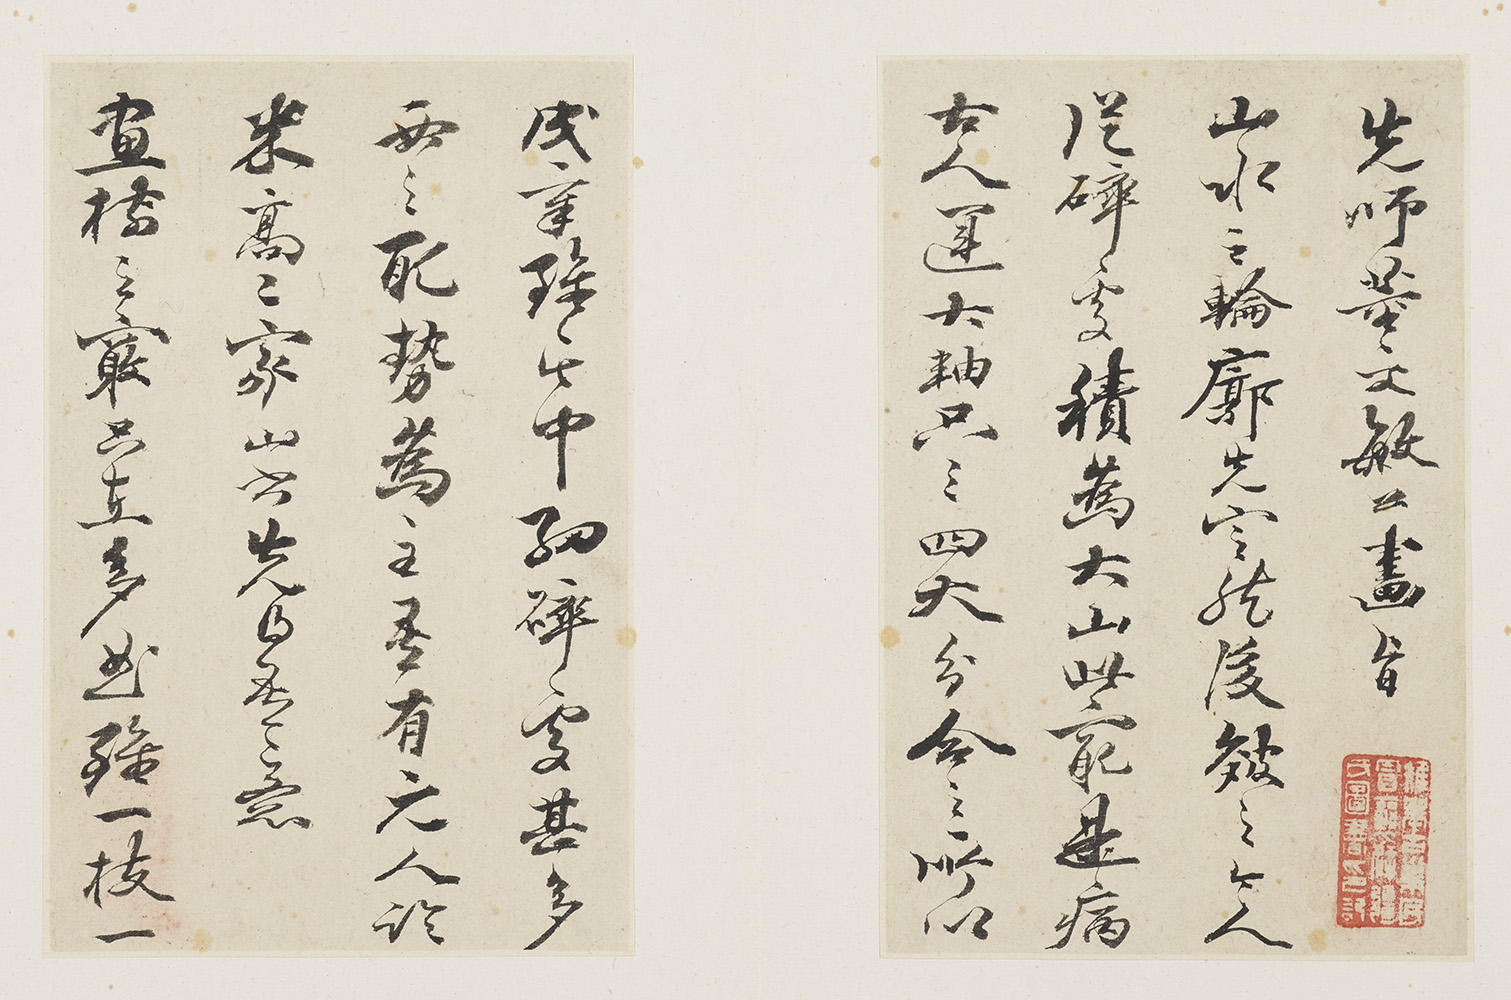 先師董文敏公畫旨
山水之輪廓先定然後皴之今人
從碎處積為大山此㝡是病
古人運大軸只三四大分合之所以
成章雖其中細碎處甚多
要之取勢為主吾有元人論
米高二家山書先得吾意
畫樹之竅只在多曲雖一枝一